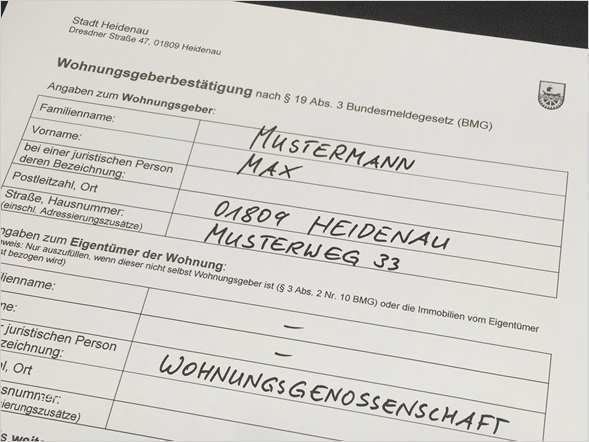 Stadt Heidenau
Dresdner Straße 47, 01809 Heidenau
Wohnungsgeberbestätigung nach § 19 Abs. 3 Bundesmeldegesetz (BMG)
Angaben zum Wohnungsgeber:
Familienname: MUSTERMANN
Vorname: MAX
bei einer juristischen Person
deren Bezeichnung:
Postleitzahl, Ort 01809 HEIDENAU
Straße, Hausnummer: MUSTERWEG 33
(einschl. Adressierungszusätze)
ngaben zum Eigentümer der Wohnung:
weis: Nur auszufüllen, wenn dieser nicht selbst Wohnungsgeber ist (§ 3 Abs. 2 Nr. 10 BMG) oder die Immobilien vom Eigentümer
st bezogen wird)
ilienname: –
me: –
r juristischen Person
zeichnung: WOHNUNGSGENOSSENSCHAFT
l, Ort
snummer:
sierungszusätze)
s weite